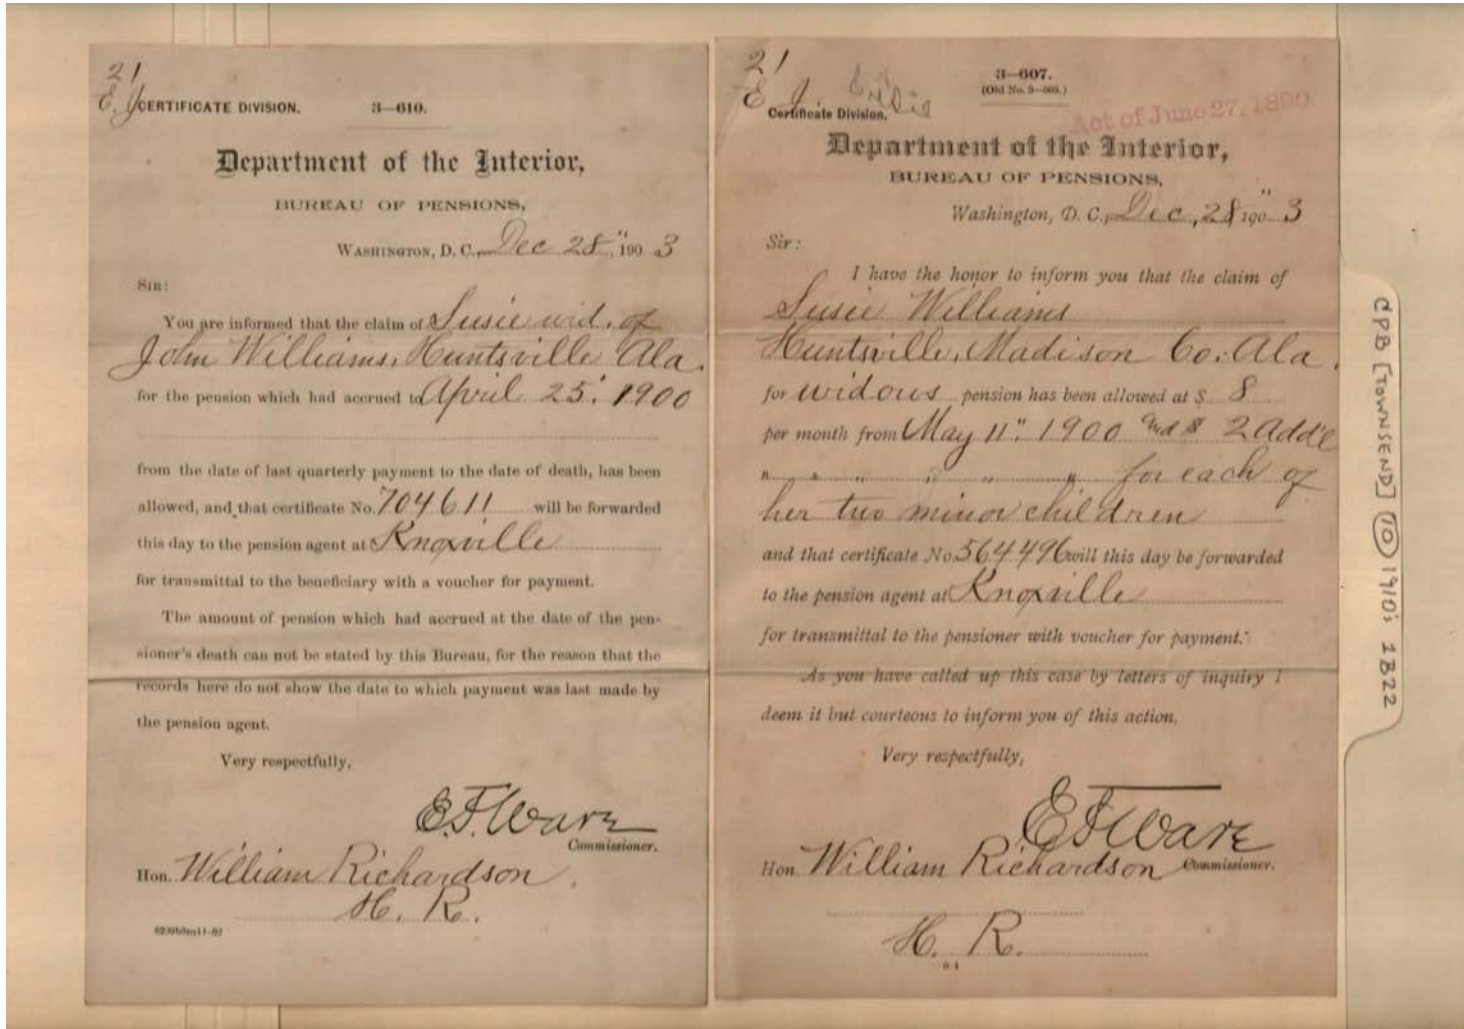 21
E. J.
CERTIFICATE DIVISION. 3—610.
Department of the Interior,
BUREAU OF PENSIONS,
WASHINGTON, D. C., Dec 28", 190 3
SIR:
You are informed that the claim of Susie wid. of
John Williams, Huntsville Ala.
for the pension which had accrued to April 25, 1900
from the date of last quarterly payment to the date of death, has been
allowed, and that certificate No. 704611 will be forwarded
this day to the pension agent at Knoxville
for transmittal to the beneficiary with a voucher for payment.
The amount of pension which had accrued at the date of the pen-
sioner's death can not be stated by this Bureau, for the reason that the
records here do not show the date to which payment was last made by
the pension agent.
Very respectfully,
E. F. Ware
Commissioner.
Hon. William Richardson,
H. R.
21
E J.
3—607.
(Old No. 3—603.)
Certificate Division.
Act of June 27, 1890.
Department of the Interior,
BUREAU OF PENSIONS,
Washington, D. C., Dec, 28", 190 3
Sir:
I have the honor to inform you that the claim of
Susie Williams
Huntsville, Madison Co. Ala.
for widows pension has been allowed at $ 8
per month from May 11", 1900 and $ 2 add'l
" " " " " " for each of
her two minor children
and that certificate No. 564496 will this day be forwarded
to the pension agent at Knoxville
for transmittal to the pensioner with voucher for payment.
As you have called up this case by letters of inquiry I
deem it but courteous to inform you of this action.
Very respectfully,
E F Ware
Commissioner.
Hon. William Richardson
H. R.
CPB [TOWNSEND] (10) 1910's 1B22